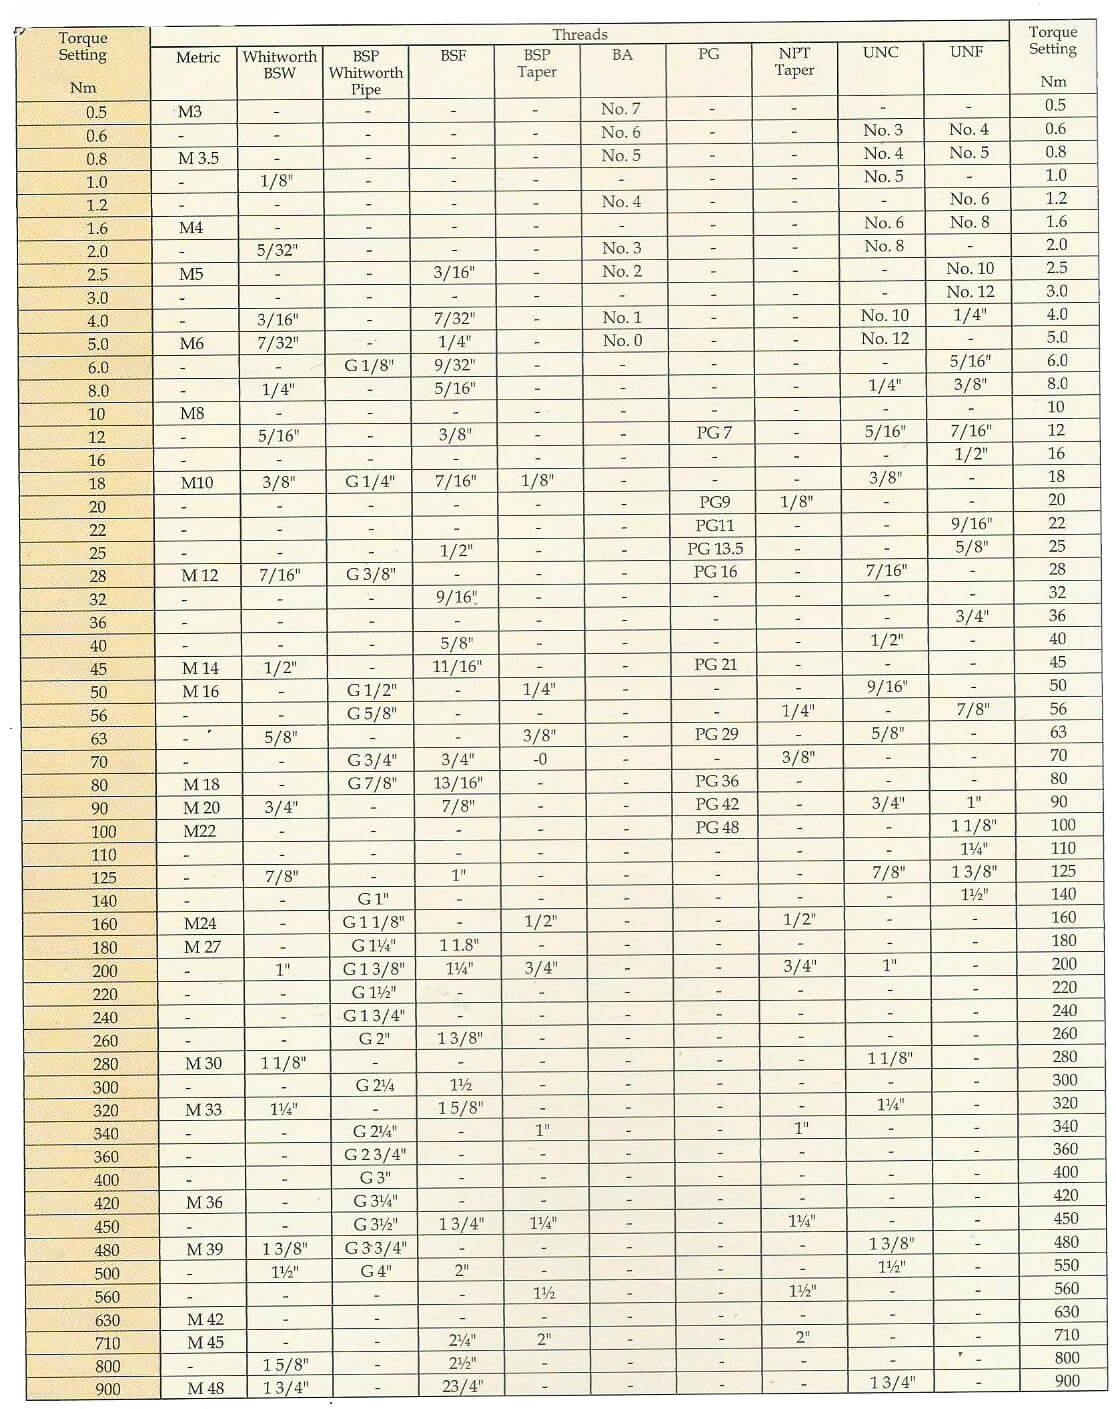 Torque Setting Nm | Threads | Torque Setting Nm
Metric | Whitworth BSW | BSP Whitworth Pipe | BSF | BSP Taper | BA | PG | NPT Taper | UNC | UNF
0.5 M3 - - - - No. 7 - - - - 0.5
0.6 - - - - - No. 6 - - No. 3 No. 4 0.6
0.8 M 3.5 - - - - No. 5 - - No. 4 No. 5 0.8
1.0 - 1/8" - - - - - - No. 5 - 1.0
1.2 - - - - - No. 4 - - - No. 6 1.2
1.6 M4 - - - - - - - No. 6 No. 8 1.6
2.0 - 5/32" - - - No. 3 - - No. 8 - 2.0
2.5 M5 - - 3/16" - No. 2 - - - No. 10 2.5
3.0 - - - - - - - - - No. 12 3.0
4.0 - 3/16" - 7/32" - No. 1 - - No. 10 1/4" 4.0
5.0 M6 7/32" - 1/4" - No. 0 - - No. 12 - 5.0
6.0 - - G 1/8" 9/32" - - - - - 5/16" 6.0
8.0 - 1/4" - 5/16" - - - - 1/4" 3/8" 8.0
10 M8 - - - - - - - - - 10
12 - 5/16" - 3/8" - - PG 7 - 5/16" 7/16" 12
16 - - - - - - - - - 1/2" 16
18 M10 3/8" G 1/4" 7/16" 1/8" - - - 3/8" - 18
20 - - - - - - PG9 1/8" - - 20
22 - - - - - - PG11 - - 9/16" 22
25 - - - 1/2" - - PG 13.5 - - 5/8" 25
28 M 12 7/16" G 3/8" - - - PG 16 - 7/16" - 28
32 - - - 9/16" - - - - - - 32
36 - - - - - - - - - 3/4" 36
40 - - - 5/8" - - - - 1/2" - 40
45 M 14 1/2" - 11/16" - - PG 21 - - - 45
50 M 16 - G 1/2" - 1/4" - - - 9/16" - 50
56 - - G 5/8" - - - - 1/4" - 7/8" 56
63 - 5/8" - - 3/8" - PG 29 - 5/8" - 63
70 - - G 3/4" 3/4" -0 - - 3/8" - - 70
80 M 18 - G 7/8" 13/16" - - PG 36 - - - 80
90 M 20 3/4" - 7/8" - - PG 42 - 3/4" 1" 90
100 M22 - - - - - PG 48 - - 1 1/8" 100
110 - - - - - - - - - 1¼" 110
125 - 7/8" - 1" - - - - 7/8" 1 3/8" 125
140 - - G 1" - - - - - - 1½" 140
160 M24 - G 1 1/8" - 1/2" - - 1/2" - - 160
180 M 27 - G 1¼" 1 1.8" - - - - - - 180
200 - 1" G 1 3/8" 1¼" 3/4" - - 3/4" 1" - 200
220 - - G 1½" - - - - - - - 220
240 - - G 1 3/4" - - - - - - - 240
260 - - G 2" 1 3/8" - - - - - - 260
280 M 30 1 1/8" - - - - - - 1 1/8" - 280
300 - - G 2¼ 1½ - - - - - - 300
320 M 33 1¼" - 1 5/8" - - - - 1¼" - 320
340 - - G 2¼" - 1" - - 1" - - 340
360 - - G 2 3/4" - - - - - - - 360
400 - - G 3" - - - - - - - 400
420 M 36 - G 3¼" - - - - - - - 420
450 - - G 3½" 1 3/4" 1¼" - - 1¼" - - 450
480 M 39 1 3/8" G 3 3/4" - - - - - 1 3/8" - 480
500 - 1½" G 4" 2" - - - - 1½" - 550
560 - - - - 1½ - - 1½" - - 560
630 M 42 - - - - - - - - - 630
710 M 45 - - 2¼" 2" - - 2" - - 710
800 - 1 5/8" - 2½" - - - - - - 800
900 M 48 1 3/4" - 23/4" - - - - 1 3/4" - 900